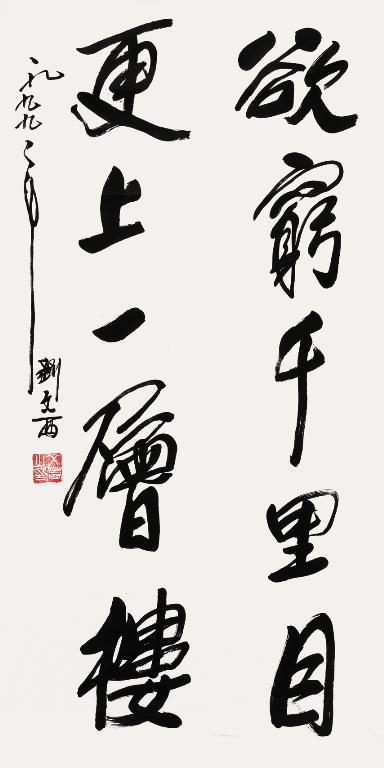 欲窮千里目
更上一層樓
一九九九年
劉文西